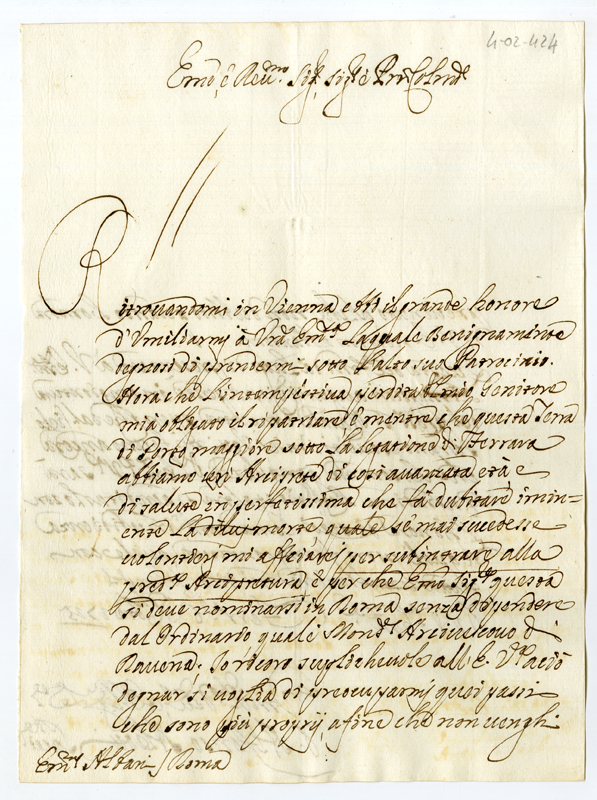 4-02-424
Emo, e Reu.mo Sig.r, Sig.r e Pne Colmo
Ritrouandomi in Vienna ebbi il grande honore
d'Vmiliarmi à Vra Em.za La quale Benignamente
degnosi di prendermi sotto l'alto suo Patrocinio.
Hora che l'intempestiua perdita del mio Genitore
mi à obligato il ripatriare è mentre che questa Terra
di Porto maggiore sotto La Legatione di Ferrara
abbiamo un Arciprete di così auanzata età e
di salute inperfetissima che fà dubitare imin=
ente La di lui morte quale se mai succedesse
uolontieri mi affiderei per subintrare alla
pred.a Arcipretura è per che Emo Sig.re questa
si deue nominarsi in Roma senza dipendere
dal Ordinario quale è Mons.r Arciuescouo di
Rauena. Io ricoro suplicheuole all E. V.ra aciò
degnar si uoglia di preocuparmi quei passi
che sono più proprij a fine che non uenghi
Em.o Albani / Roma